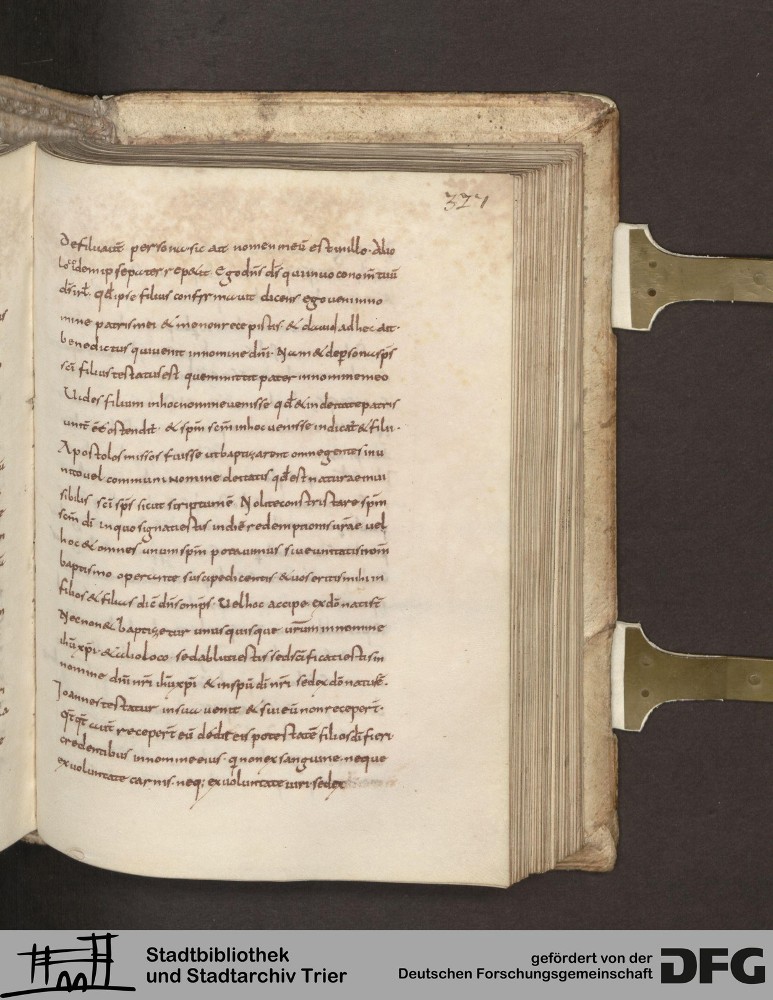 327
De filii aut̄ persona sic ait nomen meū est in illo. Alio
loco idem ipse pater repetit Ego dn̄s ds̄ qui inuoco nom̄ tuū
ds̄ isrl̄. qđ ipse filius confirmauit dicens ego ueni in no
mine patris mei & me non recepistis & dauid ad hec ait.
benedictus qui uenit in nomine dn̄i. Nam & de persona sp̄s
sc̄i filius testatus est quem mittit pater in nomine meo
Uides filium in hoc nomine uenisse qđ & in deitate patris
unit̄ ēē ostendit. & sp̄m sc̄m in hoc uenisse indicat & filii.
Apostolos missos fuisse ut baptizarent omne gentes in u
nito uel communi nomine deitatis qđ est natura e inui
sibilis sc̄i sp̄s sicut scriptum ē Nolite constristare sp̄m
sc̄m di in quo signati estis in diē redemptionis ūrae uel
hoc & omnes unum sp̄m potauimus siue unitatis nom̄
baptismo operante suscipe dicentis & uos eritis mihi in
filios & filias dic̄ dn̄s omp̄s. Uel hoc accipe ex dōnatist̄
Nec non & baptizetur unus quisque ur̄um in nomine
ih̄u xp̄i & alio loco sed abluti estis sed sc̄ificati estis in
nomine dn̄i nr̄i ih̄u xp̄i & in sp̄u di nr̄i sed ex dō nati s̄.
Ioannes testatur in sua uenit & sui eū non recepert̄.
qt̄qt̄ aut̄ recepert̄ eū dedit eis potestatē filios di fieri
credentibus in nomine eius. q̄ non ex sanguine neque
ex uoluntate carnis. neq; ex uoluntate uiri sed ex
Stadtbibliothek
und Stadtarchiv Trier
gefördert von der
Deutschen Forschungsgemeinschaft
DFG